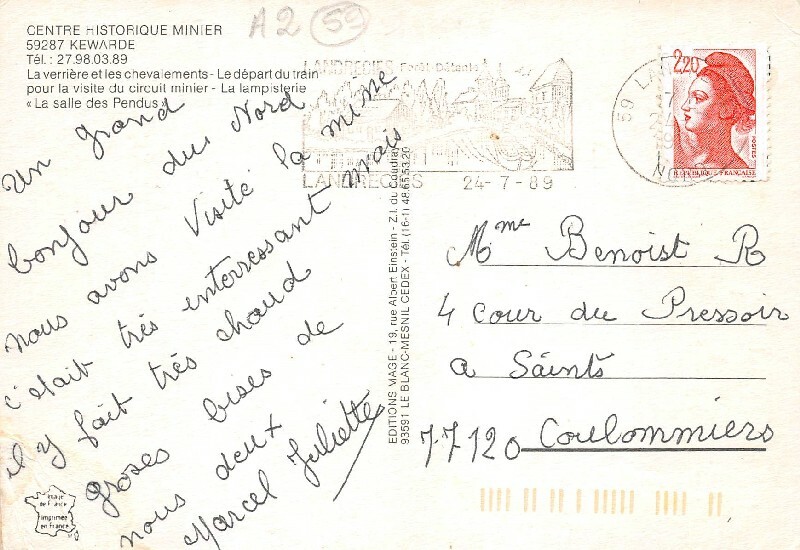 CENTRE HISTORIQUE MINIER
59287 KEWARDE
Tél.: 27.98.03.89
La verrière et les chevalements - Le départ du train
pour la visite du circuit minier - La lampisterie
« La salle des Pendus »
A2 59
Un grand
bonjour du Nord
nous avons visité la mine
c'était très enterressant mais
il y fait très chaud
groses bises de
nous deux
Marcel Juliette
LANDRECIES Forêt-Détente
LANDRECIES 24-7-89
2,20
REPUBLIQUE FRANÇAISE
POSTES
EDITIONS MAGE - 19, rue Albert Einstein - Z.I. du Coudray
93591 LE BLANC-MESNIL CEDEX - Tél. (16-1) 48.65.53.20
Mme Benoist R
4 cour du Pressoir
a Saints
77120 Coulommiers
image
de France
imprimée
en France